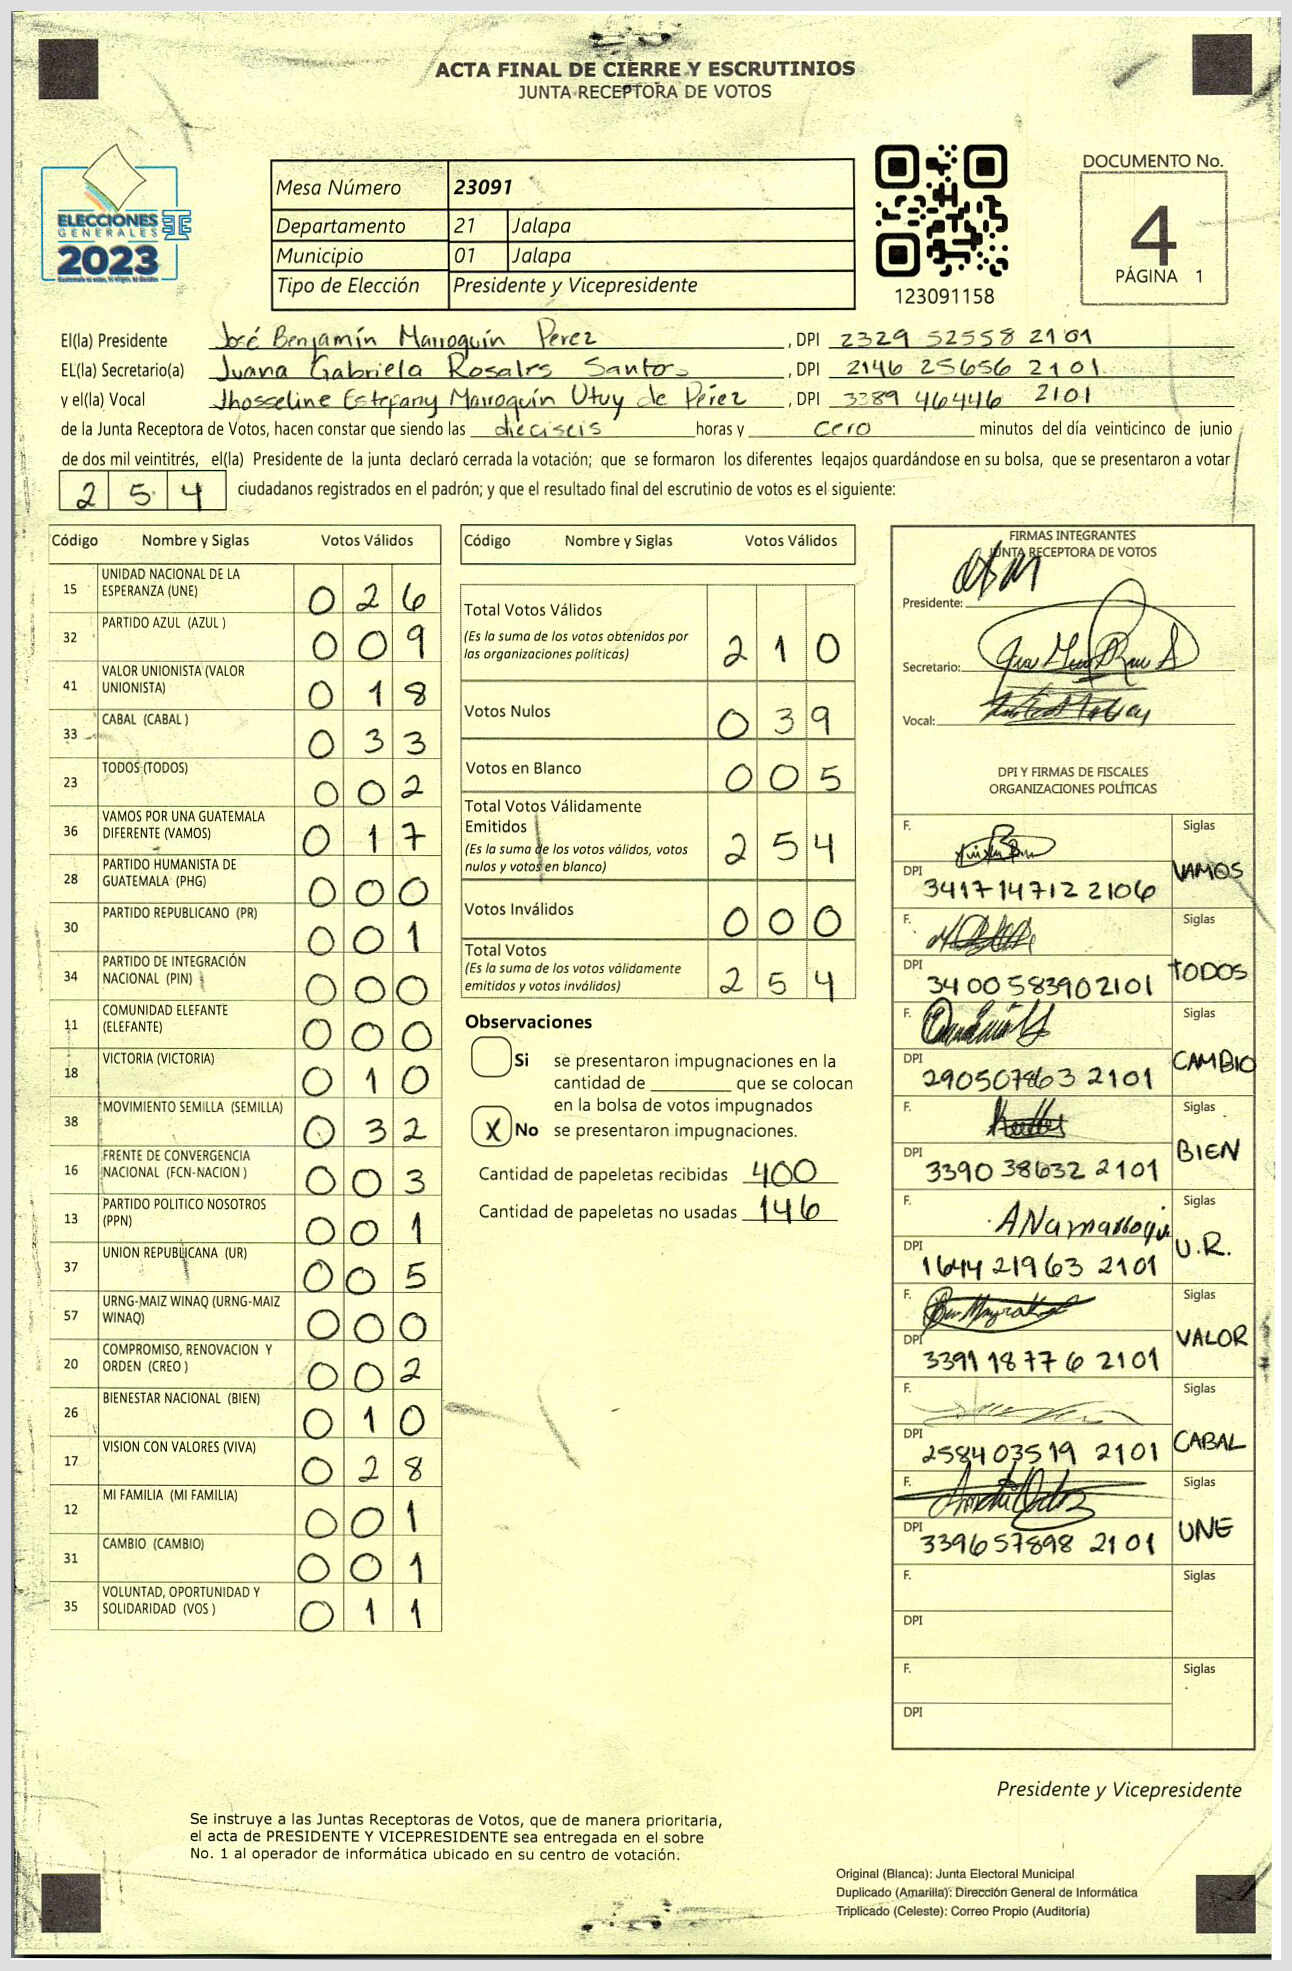 ACTA FINAL DE CIERRE Y ESCRUTINIOS
JUNTA RECEPTORA DE VOTOS
ELECCIONES
GENERALES
2023
Mesa Número 23091
Departamento 21 Jalapa
Municipio 01 Jalapa
Tipo de Elección Presidente y Vicepresidente
123091158
DOCUMENTO No.
4
PÁGINA 1
El(la) Presidente José Benjamín Marroquín Perez, DPI 2329 52558 2101
EL(la) Secretario(a) Juana Gabriela Rosales Santos, DPI 2146 25656 2101
y el(la) Vocal Jhosseline Estefany Marroquín Utuy de Pérez, DPI 3389 46446 2101
de la Junta Receptora de Votos, hacen constar que siendo las dieciseis horas y cero minutos del día veinticinco de junio
de dos mil veintitrés, el(la) Presidente de la junta declaró cerrada la votación; que se formaron los diferentes legajos guardándose en su bolsa, que se presentaron a votar
254 ciudadanos registrados en el padrón; y que el resultado final del escrutinio de votos es el siguiente:
Código Nombre y Siglas Votos Válidos
15 UNIDAD NACIONAL DE LA ESPERANZA (UNE) 026
32 PARTIDO AZUL (AZUL ) 009
41 VALOR UNIONISTA (VALOR UNIONISTA) 018
33 CABAL (CABAL ) 033
23 TODOS (TODOS) 002
36 VAMOS POR UNA GUATEMALA DIFERENTE (VAMOS) 017
28 PARTIDO HUMANISTA DE GUATEMALA (PHG) 000
30 PARTIDO REPUBLICANO (PR) 001
34 PARTIDO DE INTEGRACIÓN NACIONAL (PIN) 000
11 COMUNIDAD ELEFANTE (ELEFANTE) 000
18 VICTORIA (VICTORIA) 010
38 MOVIMIENTO SEMILLA (SEMILLA) 032
16 FRENTE DE CONVERGENCIA NACIONAL (FCN-NACION ) 003
13 PARTIDO POLITICO NOSOTROS (PPN) 001
37 UNION REPUBLICANA (UR) 005
57 URNG-MAIZ WINAQ (URNG-MAIZ WINAQ) 000
20 COMPROMISO, RENOVACION Y ORDEN (CREO ) 002
26 BIENESTAR NACIONAL (BIEN) 010
17 VISION CON VALORES (VIVA) 028
12 MI FAMILIA (MI FAMILIA) 001
31 CAMBIO (CAMBIO) 001
35 VOLUNTAD, OPORTUNIDAD Y SOLIDARIDAD (VOS ) 011
Código Nombre y Siglas Votos Válidos
Total Votos Válidos 210
(Es la suma de los votos obtenidos por
las organizaciones políticas)
Votos Nulos 039
Votos en Blanco 005
Total Votos Válidamente
Emitidos 254
(Es la suma de los votos válidos, votos
nulos y votos en blanco)
Votos Inválidos 000
Total Votos 254
(Es la suma de los votos válidamente
emitidos y votos inválidos)
Observaciones
Si se presentaron impugnaciones en la
cantidad de ________ que se colocan
en la bolsa de votos impugnados
X No se presentaron impugnaciones.
Cantidad de papeletas recibidas 400
Cantidad de papeletas no usadas 146
FIRMAS INTEGRANTES
JUNTA RECEPTORA DE VOTOS
Presidente:
Secretario:
Vocal:
DPI Y FIRMAS DE FISCALES
ORGANIZACIONES POLÍTICAS
F. Siglas
DPI 3417 14712 2106 VAMOS
F. Siglas
DPI 3400 58390 2101 TODOS
F. Siglas
DPI 2905 07863 2101 CAMBIO
F. Siglas
DPI 3390 38632 2101 BIEN
F. Siglas
DPI 1644 21963 2101 U.R.
F. Siglas
DPI 3391 18776 2101 VALOR
F. Siglas
DPI 2584 03519 2101 CABAL
F. Siglas
DPI 3396 57898 2101 UNE
F. Siglas
DPI
F. Siglas
DPI
Presidente y Vicepresidente
Se instruye a las Juntas Receptoras de Votos, que de manera prioritaria,
el acta de PRESIDENTE Y VICEPRESIDENTE sea entregada en el sobre
No. 1 al operador de informática ubicado en su centro de votación.
Original (Blanca): Junta Electoral Municipal
Duplicado (Amarilla): Dirección General de Informática
Triplicado (Celeste): Correo Propio (Auditoría)